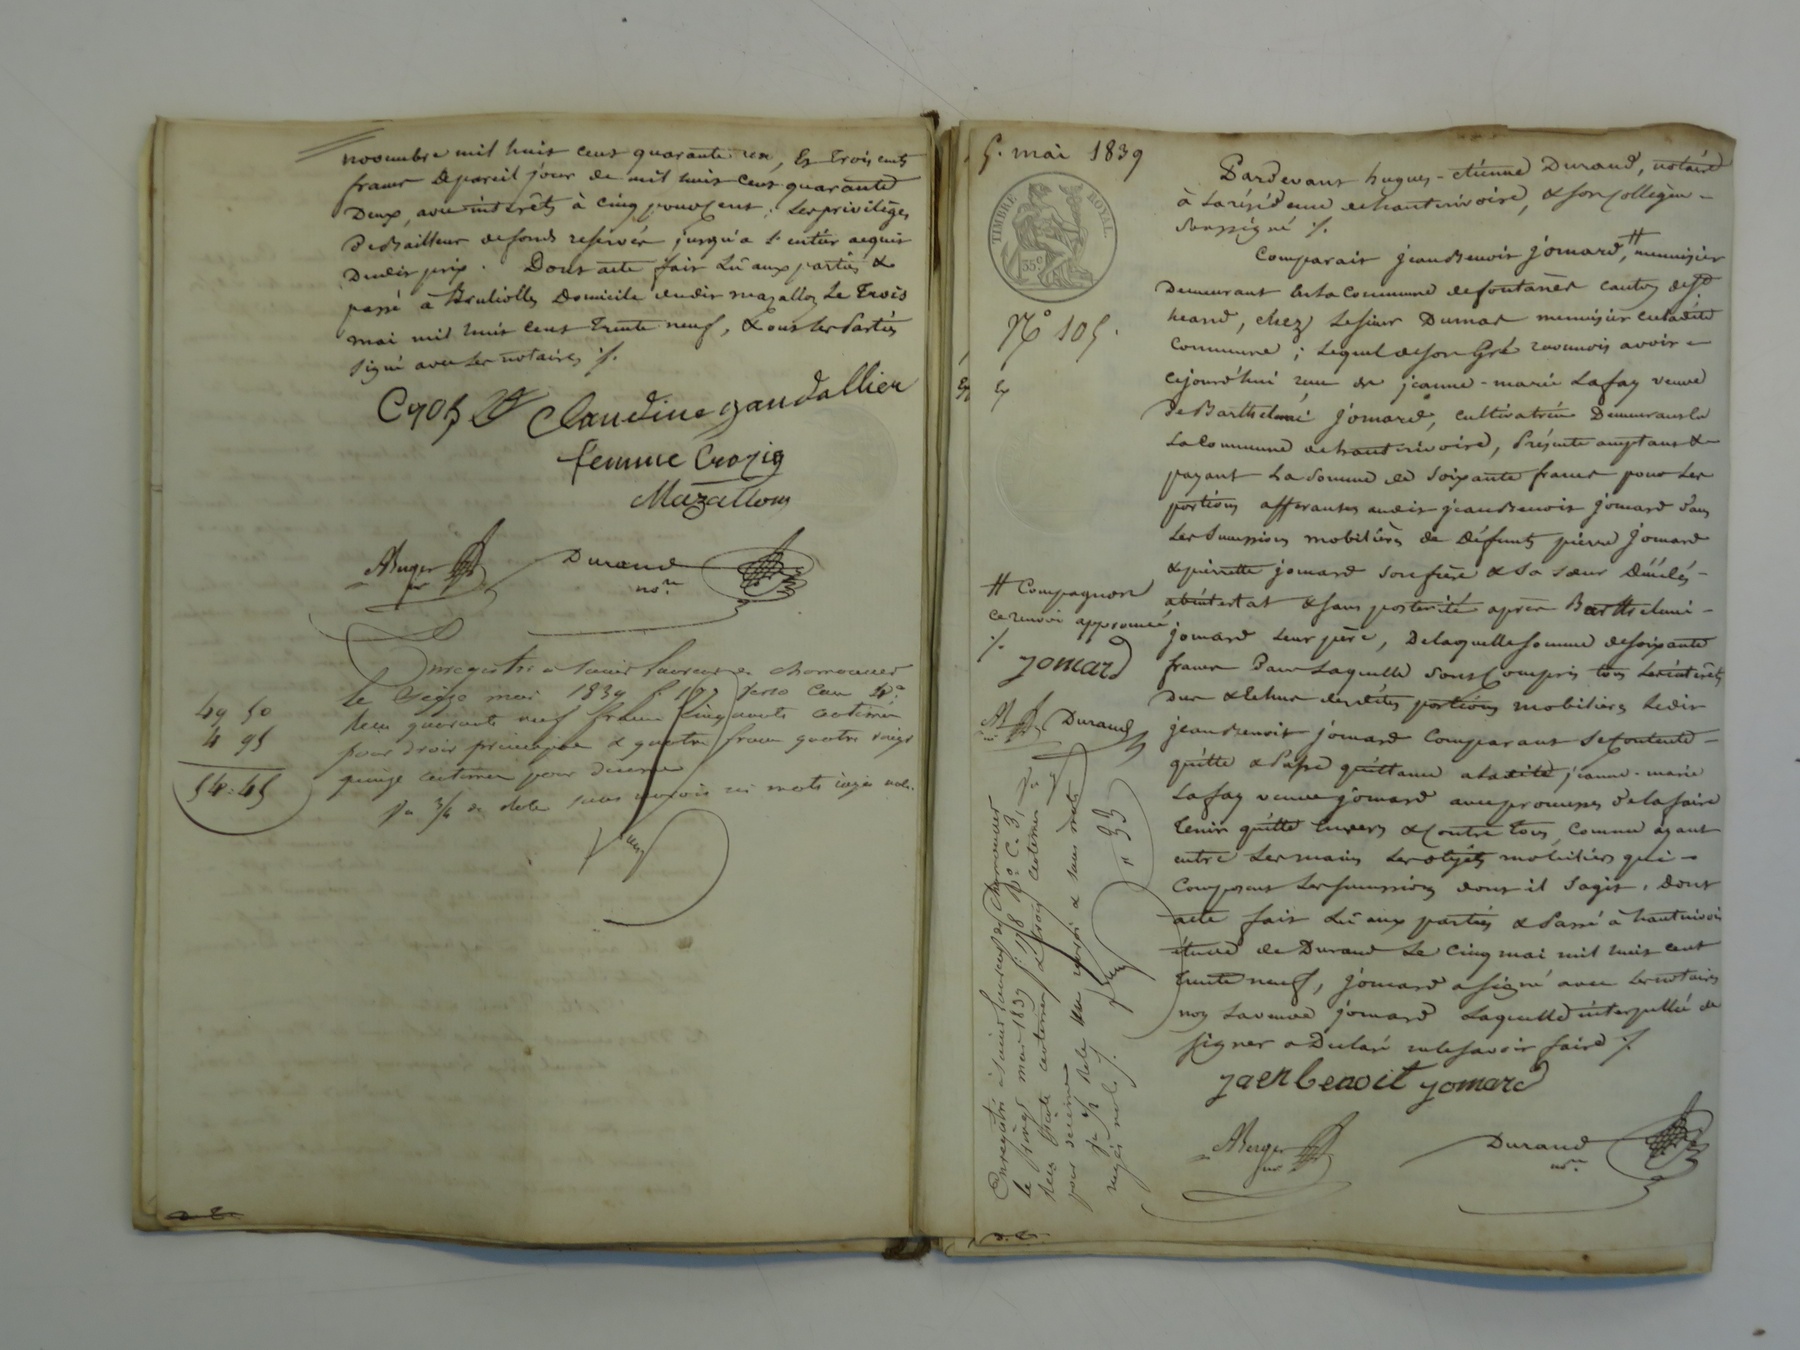 novembre mil huit cent quarante un, Et trois cents
francs de pareil jour de mil huit cent quarante
Deux, avec intérêts à cinq pour cent ; les privilèges
de Bailleur de fonds reservés jusqu'a l'entier acquit
Dudit prix . Dont acte fait Lu aux parties &
passé à Brulioles Domicile dudit mazallon Le Trois
mai mil huit cent trente neuf, & ont les Parties
signé avec les notaires ./.
Claudine gaudallier
femme Crozier
Mazallon
ABerger
nre
Durand
nore
Enregistré à Saint Laurent de chamousset
le seize mai 1839 f 197 verso Case
Recu quarante neuf francs cinquante centimes
49 50
pour droit principal & quatre francs quatre vingt
4 95
quinze centimes pour décime
54:45
sans renvois ni mots rayés nuls.
5. mai 1839
TIMBRE ROYAL
35c
No 105.
Pardevant hugues-étienne Durand, notaire
à la résidence de hauterivoire, & son Collègue -
Soussigné ./.
Comparait jean Benoit jomard, # menuisier
Demeurant En la Commune de fontanès canton de St
heand, chez Le sieur Dumas menuisier en ladite
Commune ; Lequel de son Gré reconnois avoir -
cejourd'hui recu de jeanne-marie Lafay veuve
de Barthelmi jomard, cultivatrice Demeurant en
La Commune de hauterivoire, Présente acceptant &
payant La Somme de Soixante francs pour Les
portions afférantes audit jean Benoit jomard dans
Les Successions mobilières de Défunts pierre jomard
& pierrette jomard son frère & sa sœur Décédés -
abintestat & sans posterité après Barthelmi -
jomard leur père, De laquelle somme de soixante
francs Dans Laquelle Sont Compris tous les intérêts
Dus & Echus desdites portions mobilières Ledit
jean Benoit jomard Comparant Se Contente -
quitte & Passe quittance a Ladite jeanne-marie
Lafay veuve jomard avec promesses de la faire
Tenir quitte Envers & Contre tous, Comme ayant
entre Les mains Les objets mobiliers qui -
Composent Les Successions dont il s'agit. Dont
acte fait Lu aux parties & Passé à hauterivoire
étude de Durand Le Cinq mai mil huit cent
trente neuf, jomard a signé avec Les notaires
non La veuve jomard Laquelle interpellée de
signer a Declaré ne le savoir faire ./.
jaenbenoit jomard
ABerger
nre
Durand
nore
# Compagnon
ce renvoi approuvé
./.
jomard
Durand
Enregistré à Saint Laurent de Chamousset
le seize mai 1839 f. 198 Ro. C. 3,
Recu trente centimes & trois centimes
pour décime
un renvoi & sans mots
rayés nuls ./.
" 33